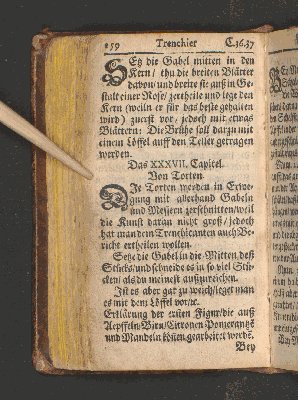 159 Trenchier C.36.37
SEtz die Gabel mitten in den
Kern / thu die breiten Blätter
davon / und breite sie auß in Ge-
stalt einer Rose / zertheile und lege den
Kern (weiln er für das beste gehalten
wird) zuerst vor / jedoch mit etwas
Blättern: Die Brühe soll darzu mit
einem Löffel auff den Teller getragen
werden.
Das XXXVII. Capitel.
Von Torten.
DIe Torten werden in Erwe-
gung mit allerhand Gabeln
und Messern zerschnitten / weil
die Kunst daran nicht groß / jedoch
hat man dem Trenchicanten auch Be-
richt ertheilen wollen.
Setze die Gabel in die Mitten deß
Stücks / und schneide es in so viel Stü-
cken / als du meinest außzureichen.
Ist es aber gar zu weich / leget man
es mit dem Löffel vor / ꝛc.
Erklärung der ersten Figur / die auß
Aepffeln / Birn / Citronen Pomerantzē
und Mandeln können gearbeitet werdē.
Bey